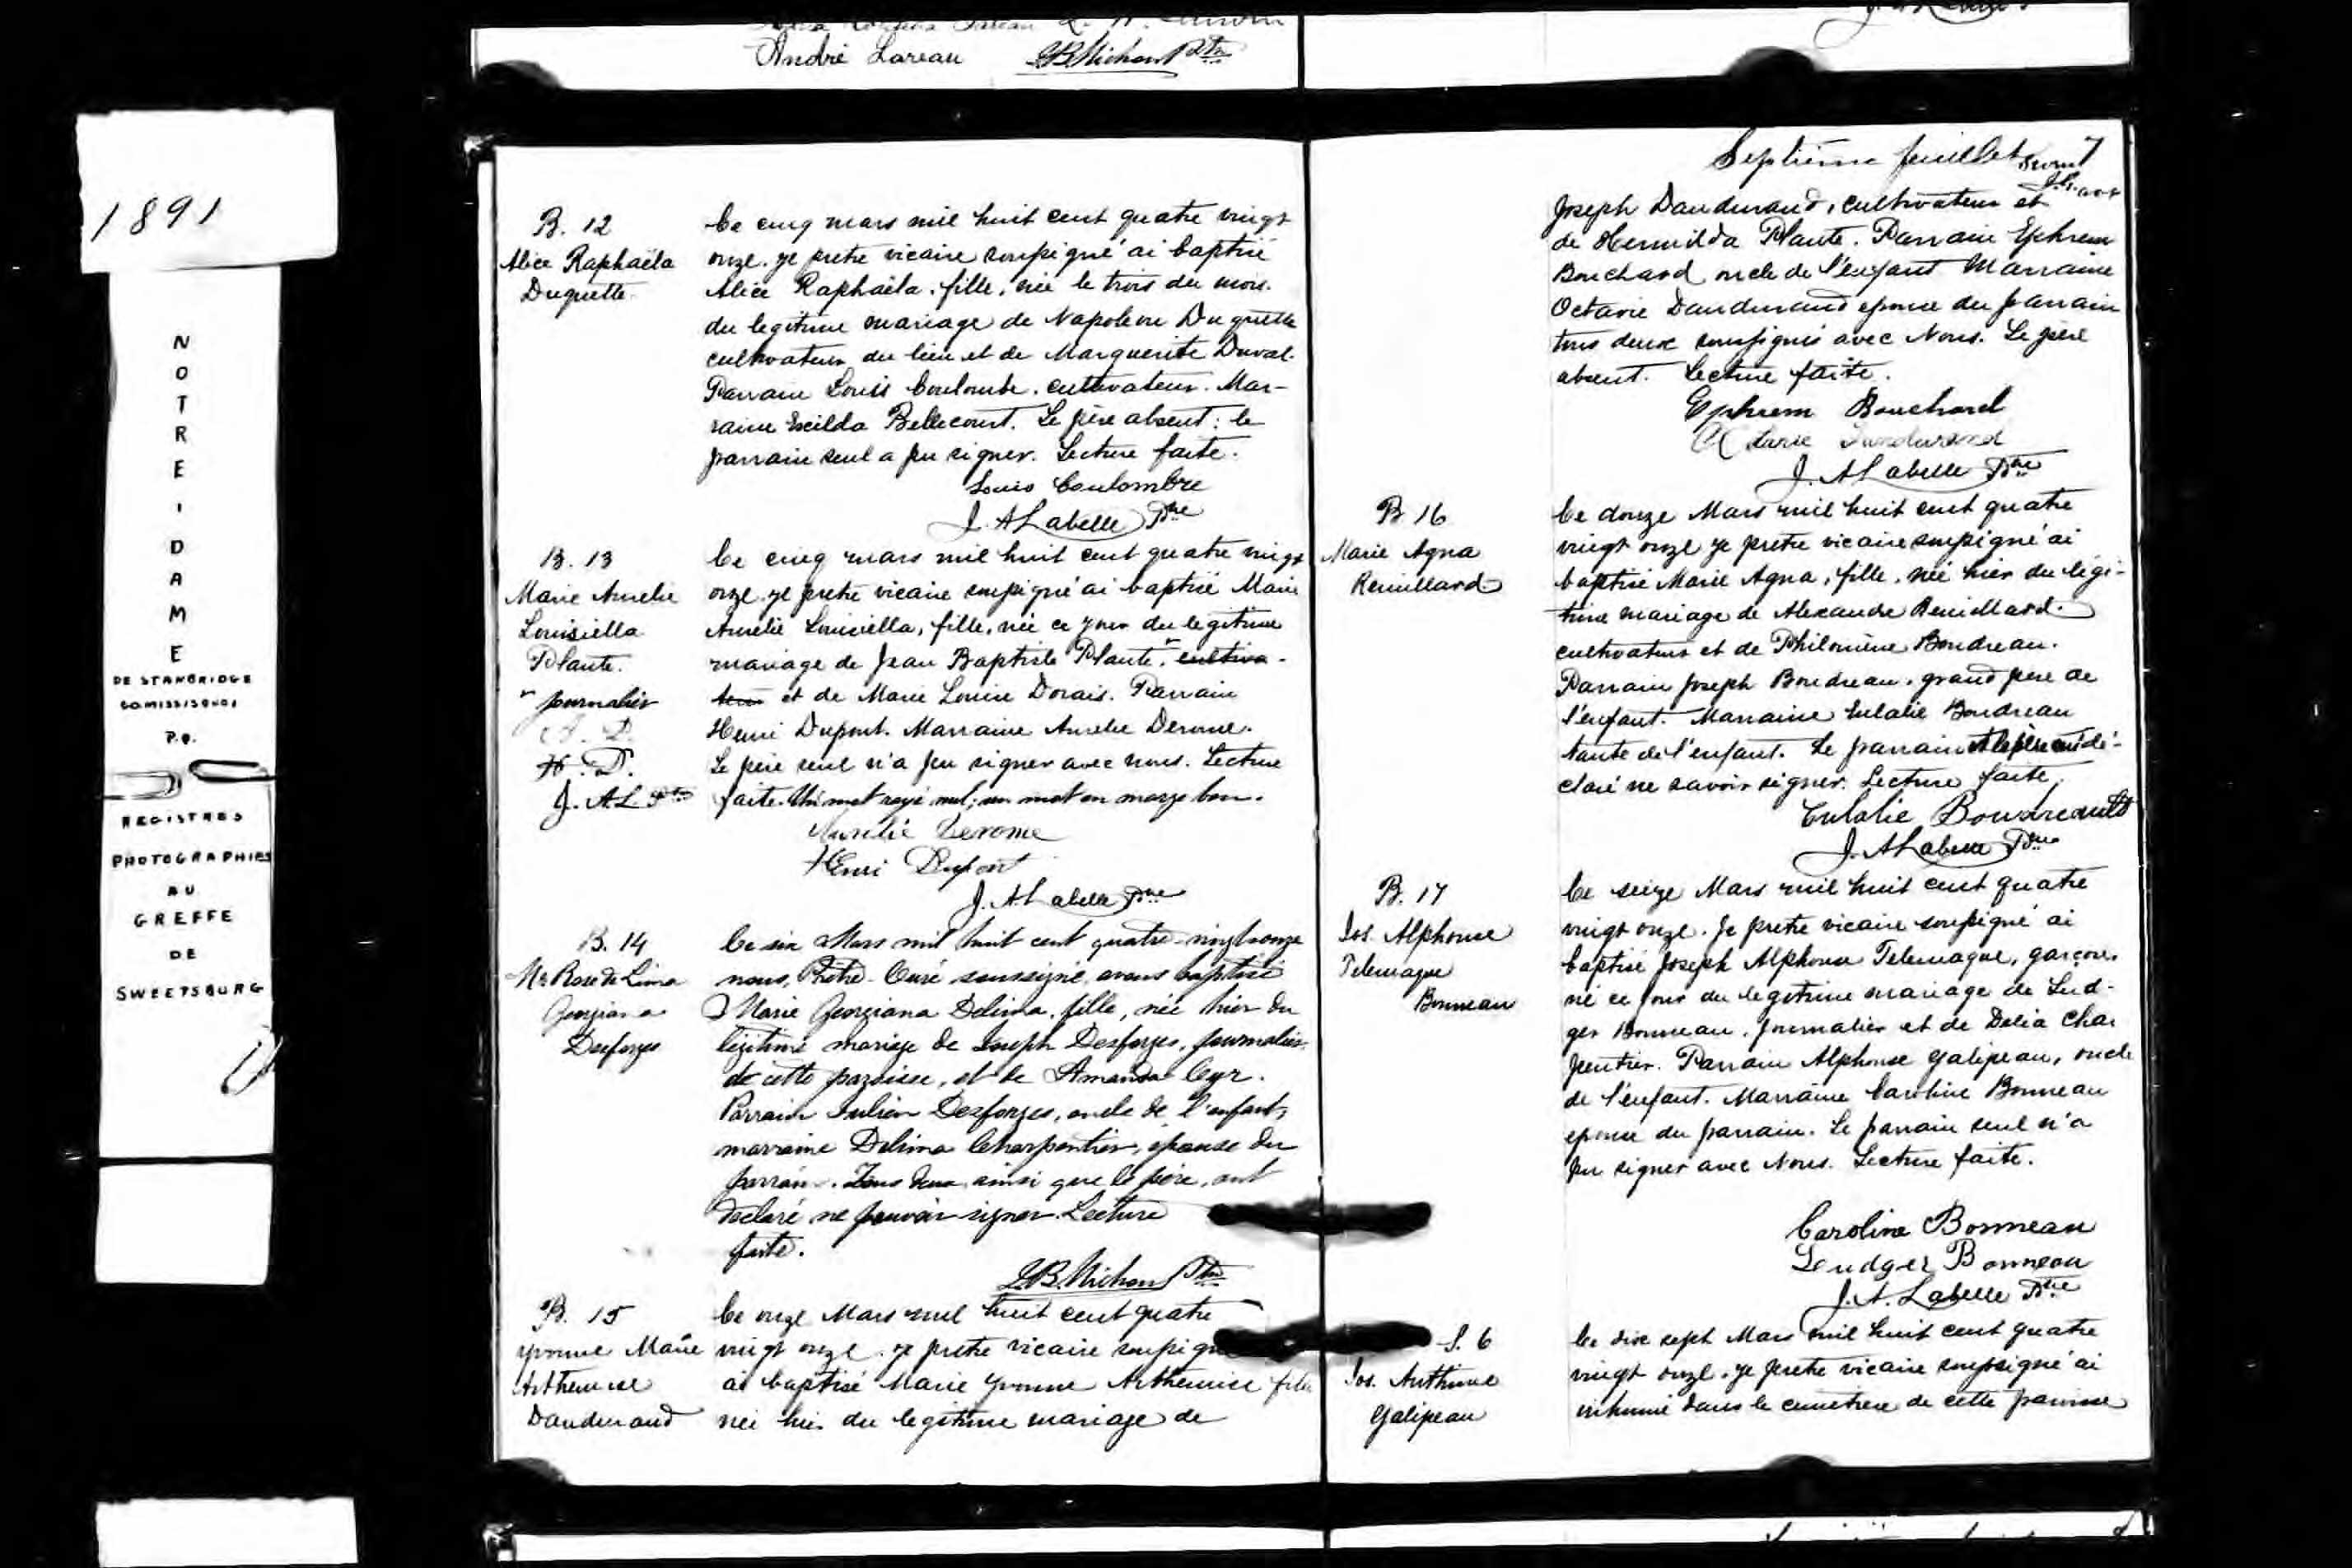 André Lareau
1891
NOTRE-DAME
DE STANBRIDGE
COMISSISQUOI
P.Q.
REGISTRES
PHOTOGRAPHIES
AU
GREFFE
DE
SWEETSBURG
B. 12
Alice Raphaëla
Duquette
Ce cinq mars mil huit cent quatre vingt
onze. je pretre vicaire soussigné ai baptisé
Alice Raphaëla. fille, née le trois du mois.
du legitime mariage de Napoleon Duquette
cultivateur du lieu et de Marguerite Duval.
Parrain Louis Coulombe. cultivateur. Mar-
raine Exilda Bellecourt. Le père absent: le
parrain seul a pu signer. Lecture faite.
Louis Coulombre
J. A Labelle Ptre
B. 13
Marie Aurelie
Louisiella
Plante.
journalier
A. D.
H. D.
J. A. L. Ptre
Ce cinq mars mil huit cent quatre vingt
onze. je pretre vicaire soussigné ai baptisé Marie
Aurelie Louisiella, fille, née ce jour du legitime
mariage de Jean Baptiste Plante, cultiva-
teur et de Marie Louise Dorais. Parrain
Henri Dupont. Marraine Aurelie Derome.
Le père seul n'a pu signer avec nous. Lecture
faite. Un mot rayé nul; un mot en marge bon.
Aurelie Derome
Henri Dupont
J. A. Labelle Ptre
B. 14
Me Rose de Lima
Georgiana
Desforges
Ce six Mars mil huit cent quatre-vingt-onze
nous, Prêtre-Curé soussigné, avons baptisé
Marie Georgiana Delima, fille, née hier du
légitime mariage de Joseph Desforges, journalier
de cette paroisse, et de Amanda Cyr.
Parrain Julien Desforges, oncle de l'enfant,
marraine Delima Charpentier, épouse du
parrain. Tous deux, ainsi que le père, ont
declaré ne pouvoir signer. Lecture
faite.
B. 15
Yvonne Marie
Arthemise
Dandurand
Ce onze Mars mil huit cent quatre
vingt onze. je pretre vicaire soussigné
ai baptisé Marie Yvonne Arthemise fille
née hier du legitime mariage de
Septième feuillet 7
Joseph Dandurand, cultivateur et
de Hermilda Plante. Parrain Ephrem
Bouchard oncle de l'enfant Marraine
Octavie Dandurand epouse du parrain
tous deux soussignés avec Nous. Le père
absent. Lecture faite.
Ephrem Bouchard
J. A Labelle Ptre
B 16
Marie Agna
Remillard
Ce douze Mars mil huit cent quatre
vingt onze je pretre vicaire soussigné ai
baptisé Marie Agna, fille, née hier du légi-
time mariage de Alexandre Remillard.
cultivateur et de Philomène Boudreau.
Parrain Joseph Boudreau. grand père de
l'enfant. Marraine Eulalie Boudreau
tante de l'enfant. Le parrain et le père ont dé-
claré ne savoir signer. Lecture faite.
Eulalie Boudreault
J. A Labelle Ptre
B. 17
Jos. Alphonse
Telemaque
Bonneau
Ce seize Mars mil huit cent quatre
vingt onze. Je pretre vicaire soussigné ai
baptisé Joseph Alphonse Telemaque, garçon.
né ce jour du legitime mariage de Lud-
ger Bonneau. Journalier et de Delia Char
pentier. Parrain Alphonse Galipeau, oncle
de l'enfant. Marraine Caroline Bonneau
epouse du parrain. Le parrain seul n'a
pu signer avec Nous. Lecture faite.
Caroline Bonneau
Ludger Bonneau
J. A. Labelle Ptre
S. 6
Jos. Anthime
Galipeau
Ce dix sept Mars mil huit cent quatre
vingt onze. je pretre vicaire soussigné ai
inhumé dans le cimetiere de cette paroisse